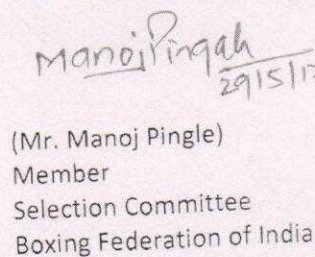 Manoj Pingah
29/5/17
(Mr. Manoj Pingle)
Member
Selection Committee
Boxing Federation of India